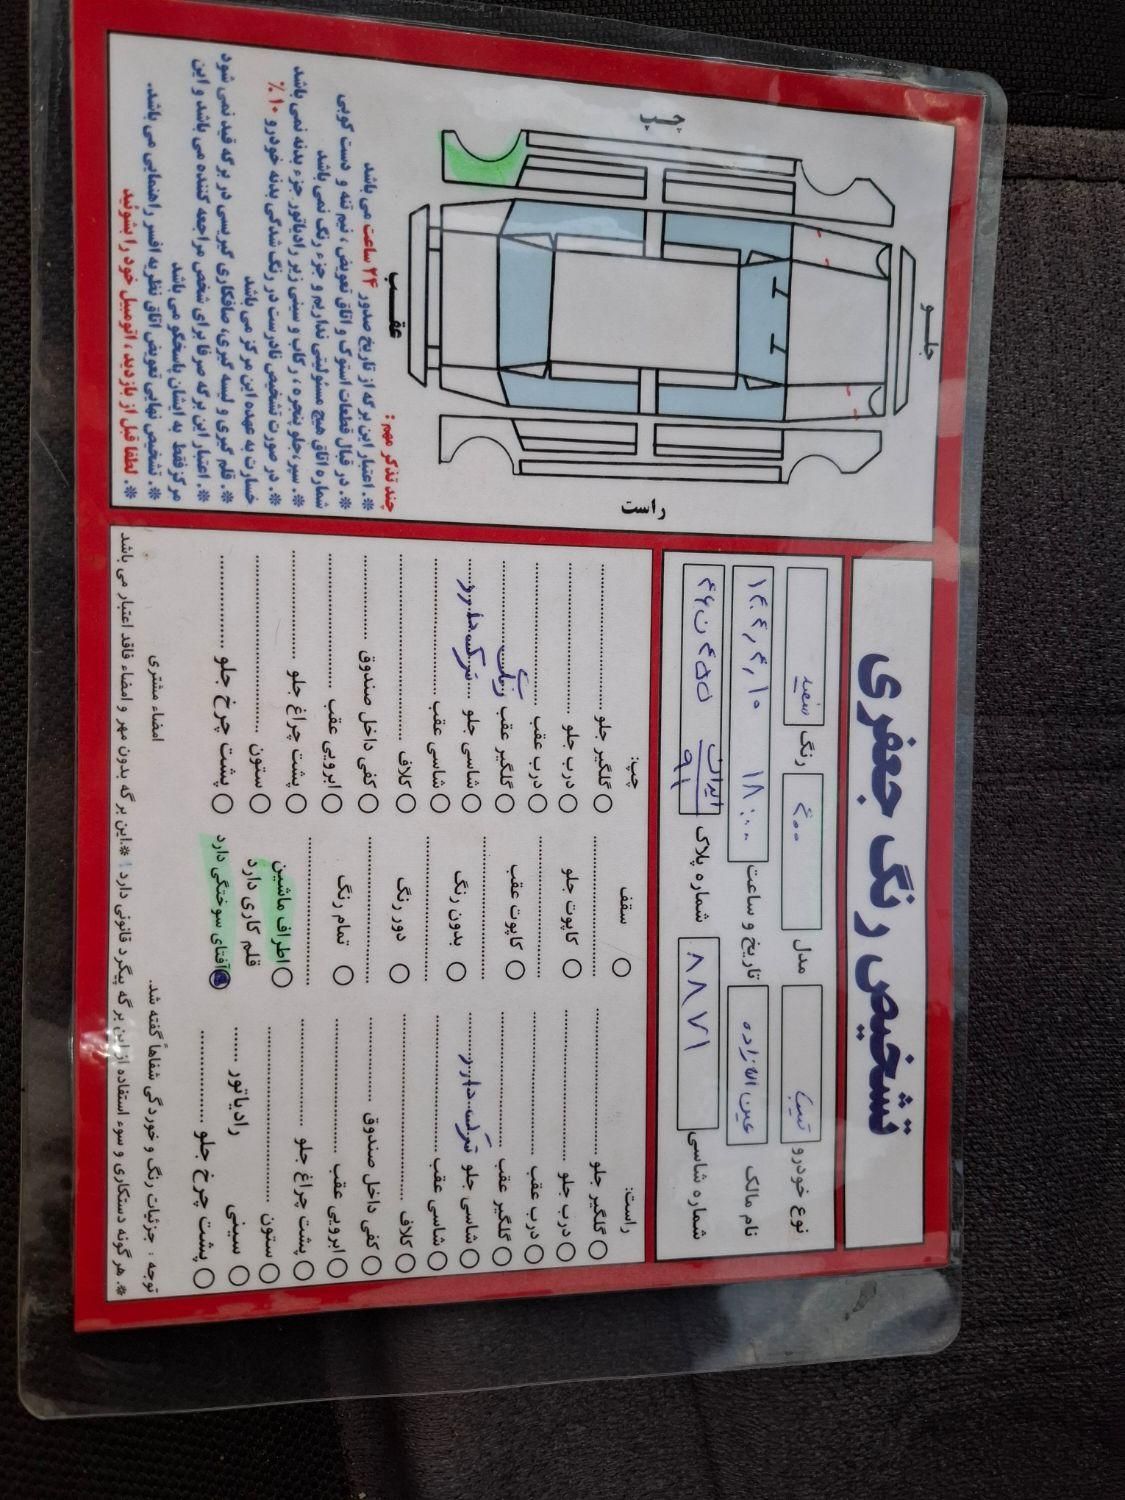 تشخیص رنگ جعفری
نوع خودرو تیبا مدل ۴۰۰ رنگ سفید
نام مالک عین اله زاده تاریخ و ساعت ۱۴۰۴,۴,۱۰ ۱۸:۰۰
شماره شاسی ۸۸۷۱ شماره پلاک ایران ۹۱ ۴۵۵ ن ۴۶
راست:
گلگیر جلو
درب جلو
درب عقب
گلگیر عقب
شاسی جلو ترک دارد
شاسی عقب
کلاف
کفی داخل صندوق
ابرویی عقب
پشت چراغ جلو
ستون
سینی رادیاتور
پشت چرخ جلو
سقف
کاپوت جلو
کاپوت عقب
بدون رنگ
دور رنگ
تمام رنگ
اطراف ماشین
قلم کاری دارد
آفتای سوختگی دارد
چپ:
گلگیر جلو
درب جلو
درب عقب
گلگیر عقب رنگ
شاسی جلو ترک دارد
شاسی عقب
کلاف
کفی داخل صندوق
ابرویی عقب
پشت چراغ جلو
ستون
پشت چرخ جلو
توجه : جزئیات رنگ و خوردگی شفاهاً گفته شد.
امضاء مشتری
※. هر گونه دستکاری و سوء استفاده از این برگه پیگرد قانونی دارد ! ※.این برگه بدون مهر و امضاء فاقد اعتبار می باشد
جلــو
چــپ
راست
عقــب
چند تذکر مهم:
※. اعتبار این برگه از تاریخ صدور ۲۴ ساعت می باشد
※. در قبال قطعات استوک و اتاق تعویض ، نیم تنه و دست کوبی
شماره اتاق هیچ مسئولیتی نداریم و جزء رنگ نمی باشد
※. سپر،جلو پنجره ، رکاب و سینی زیر رادیاتور جزء بدنه نمی باشد
※. در صورت تشخیص نادرست در رنگ شدگی بدنه خودرو ۱۰٪
خسارت به عهده این مرکز می باشد
※. قلم گیری و لیسه گیری، صافکاری گیریسی در برگه قید نمی شود
※. اعتبار این برگه صرفا برای شخص مراجعه کننده می باشد و این
مرکز فقط به ایشان پاسخگو می باشد
※. تشخیص نهایی تعویض اتاق نظر به افسر راهنمایی می باشد.
※. لطفا قبل از بازدید ، اتومبیل خود را بشوئید